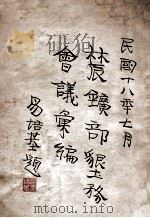 民國十八年七月
農鑛部墾務
會議彙編
易培基題